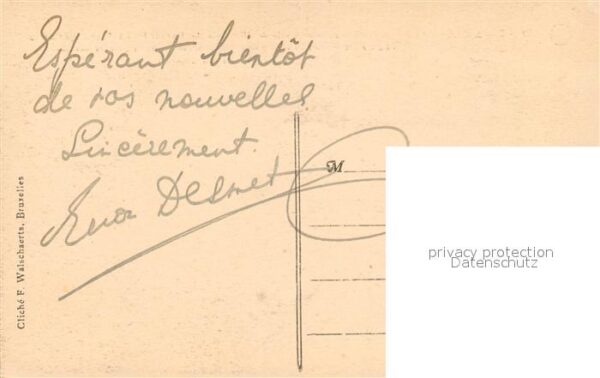 Espérant bientôt
de vos nouvelles
Sincèrement.
Desmet
M
Cliché F. Walschaerts, Bruxelles
privacy protection
Datenschutz